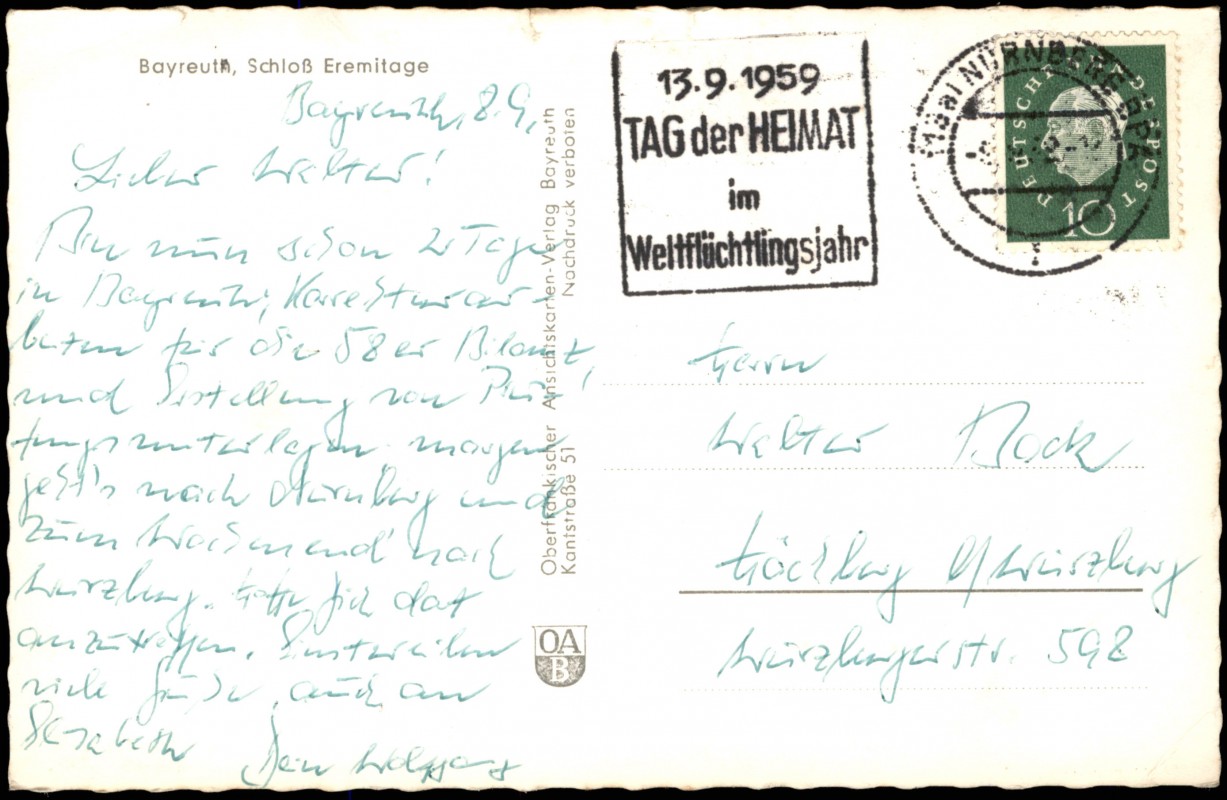 Bayreuth, Schloß Eremitage
Bayreuth, 8.9.
Lieber Walter!
Bin nun schon 2 Tage
in Bayreuth, Korrekturar-
beiten für die 58er Bilanz,
und Erstellung von Prü-
fungsunterlagen morgen
geht's nach Nürnberg und
zum Wochenend' nach
Würzburg. Hoffe Dich dort
anzutreffen. Einstweilen
viele Grüße, auch an
Elisabeth Dein Wolfgang
Oberfränkischer Ansichtskarten-Verlag Bayreuth
Kantstraße 51 Nachdruck verboten
OA
B
13.9.1959
TAG der HEIMAT
im
Weltflüchtlingsjahr
NÜRNBERG BPA
DEUTSCHE BUNDESPOST
10
Herrn
Walter Bock
Höchberg b/Würzburg
Würzburgerstr. 598